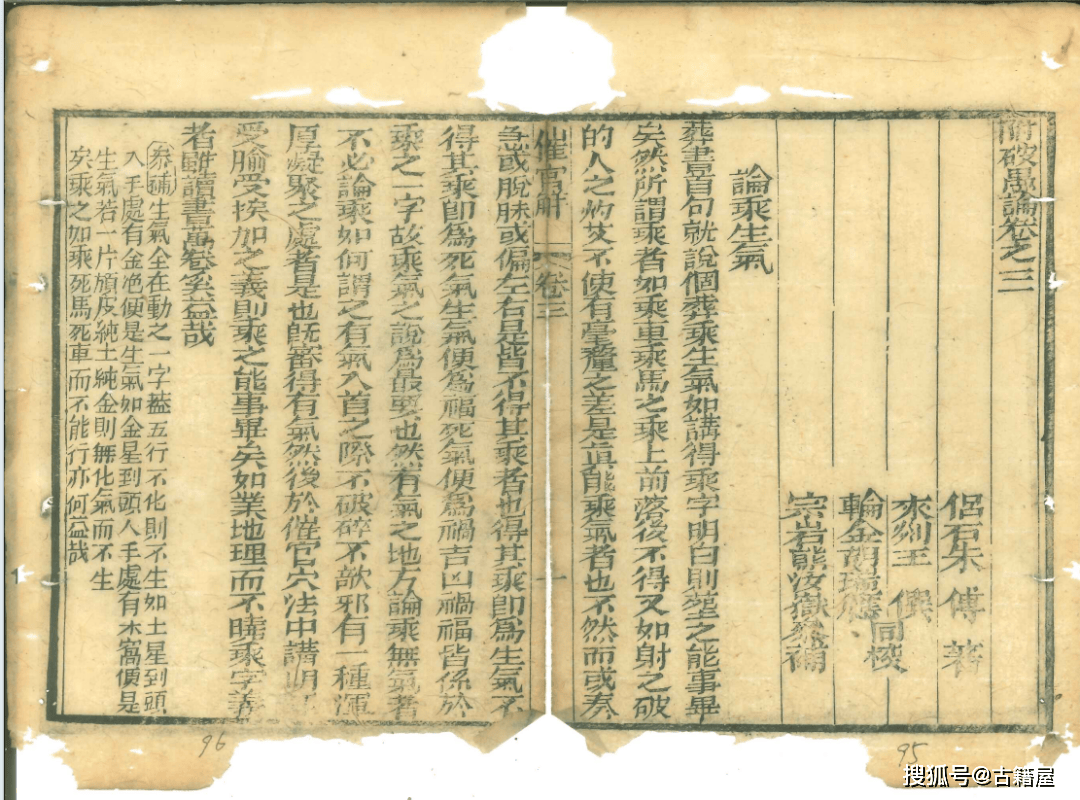 附破愚論卷之三
侶石朱 傅 著
來 王 僎
同校
輪金胡瑞應
宗岩熊汝嶽參補
論乘生氣
葬書首句就說個葬乘生氣如講得乘字明白則塟之能事畢
矣然所謂乘者如乘車乘馬之乘上前落後不得又如射之破
的人之灼艾不使有毫釐之差是真能乘氣者也不然而或奏
催官解 卷三 一
急或脫脉或偏左右是皆不得其乘者也得其乘卽為生氣不
得其乘卽為死氣生氣便為福死氣便為禍吉凶禍福皆係於
乘之一字故乘氣之說為最要也然有氣之地方論乘無氣者
不必論乘如何謂之有氣入首之際不破碎不欹邪有一種渾
厚凝聚之處者是也旣審得有氣然後於催官穴法中講明
受脉受挨加之義則乘之能事畢矣如業地理而不曉乘字義
者雖讀書萬卷奚益哉
參補 生氣全在動之一字葢五行不化則不生如土星到頭
入手處有金泡便是生氣如金星到頭入手處有水窩便是
生氣若一片頑皮純土純金則無化氣而不生
矣乘之如乘死馬死車而不能行亦何益哉
96
95
搜狐号@古籍屋